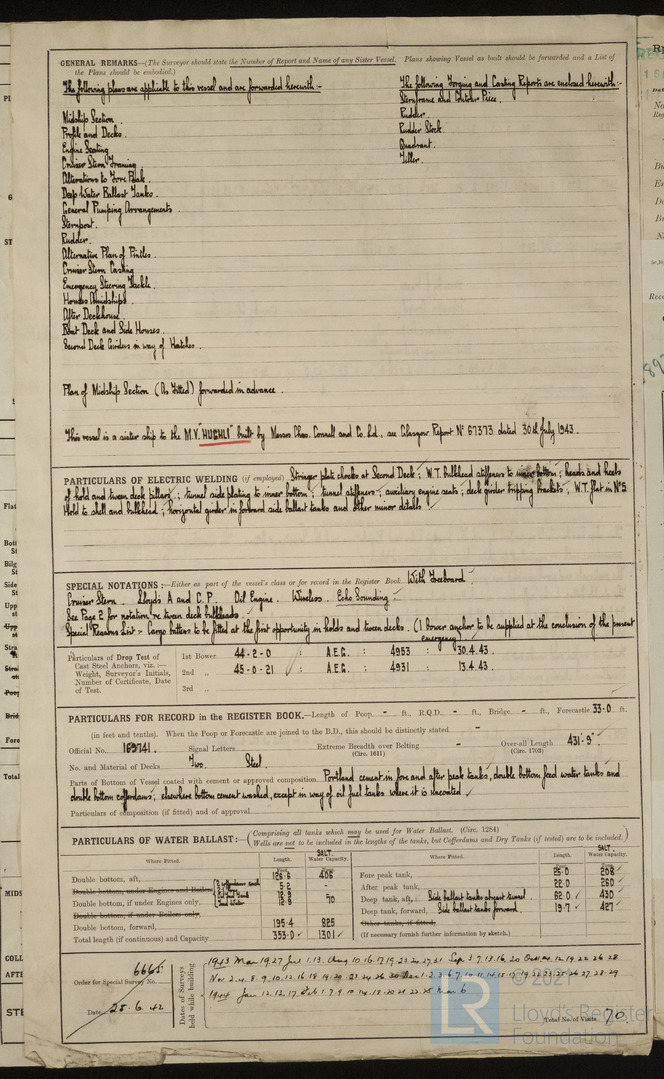 GENERAL REMARKS—(The Surveyor should state the Number of Report and Name of any Sister Vessel. Plans showing Vessel as built should be forwarded and a List of
the Plans should be embodied.)
The following plans are applicable to this vessel and are forwarded herewith :-
Midship Section
Profile and Decks.
Engine Seating
Cruiser Stern Framing
Alterations to Fore Peak.
Deep Water Ballast Tanks.
General Pumping Arrangements
Sternpost.
Rudder.
Alternative Plan of Pintles.
Cruiser Stern Casting
Emergency Steering Tackle.
Houses Amidships.
After Deckhouse.
Boat Deck and Side Houses.
Second Deck Girders in way of Hatches.
The following Forging and Casting Reports are enclosed herewith:-
Sternframe and Contour Piece.
Rudder.
Rudder Stock.
Quadrant.
Tiller.
Plan of Midship Section (As Fitted) forwarded in advance.
This vessel is a sister ship to the M.V. "HUGHLI" built by Messrs Chas. Connell and Co. Ld., see Glasgow Report No 67373 dated 30th July 1943.
PARTICULARS OF ELECTRIC WELDING (if employed) Stringer plate chocks at Second Deck; W.T. bulkhead stiffeners to inner bottom; heads and heels
of hold and tween deck pillars; tunnel side plating to inner bottom; tunnel stiffeners; auxiliary engine seats; deck girder tripping brackets; W.T. flat in No 5
Hold to shell and bulkhead; horizontal girder in forward side ballast tanks and other minor details
SPECIAL NOTATIONS:—Either as part of the vessel's class or for record in the Register Book With Freeboard.
Cruiser Stern. Lloyds A and C.P. Oil Engine. Wireless. Echo Sounding.
See Page 2 for notation re tween deck bulkheads.
Special Reasons List :- Cargo battens to be fitted at the first opportunity in holds and tween decks. (1 bower anchor to be supplied at the conclusion of the present
emergency)
Particulars of Drop Test of
Cast Steel Anchors, viz.:—
Weight, Surveyor's Initials,
Number of Certificate, Date
of Test.
1st Bower 44-2-0 : A.E.G. : 4953 : 30.4.43.
2nd " 45-0-21 : A.E.G. : 4931 13.4.43.
3rd "
PARTICULARS FOR RECORD in the REGISTER BOOK.—Length of Poop - ft., R.Q.D. - ft., Bridge - ft., Forecastle 33.0 ft.
(in feet and tenths). When the Poop or Forecastle are joined to the B.D., this should be distinctly stated -
Official No. 169741. Signal Letters Extreme Breadth over Belting - Over-all Length 431'-9"
(Circ. 1611) (Circ. 1703)
No. and Material of Decks Two. Steel.
Parts of Bottom of Vessel coated with cement or approved composition Portland cement in fore and after peak tanks, double bottom feed water tanks and
double bottom cofferdams; elsewhere bottom cement washed, except in way of oil fuel tanks where it is uncoated.
Particulars of composition (if fitted) and of approval
PARTICULARS OF WATER BALLAST:— (Comprising all tanks which may be used for Water Ballast. (Circ. 1284)
Wells are not to be included in the lengths of the tanks, but Cofferdams and Dry Tanks (if tested) are to be included.)
Where Fitted. Length. SALT. Water Capacity.
Double bottom, aft, 126.6 406
Double bottom, under Engines and Boilers 5.2 -
Double bottom, if under Engines only,
Double bottom, if under Boilers only,
Double bottom, forward, 195.4 825
Total length (if continuous) and Capacity 353.0 1301
Where Fitted. Length. SALT. Water Capacity.
Fore peak tank, 25.0 208
After peak tank, 22.0 260
Deep tank, aft, Side ballast tanks abreast tunnel 62.0 430
Deep tank, forward, Side ballast tanks forward. 19.7 427
Other tanks, if fitted,
(If necessary furnish further information by sketch.)
Order for Special Survey No. 6665
Date 25.6.42
Dates of Surveys
held while building
Total No. of Visits 70.
© 2021
LR
Lloyd's Register
Foundation